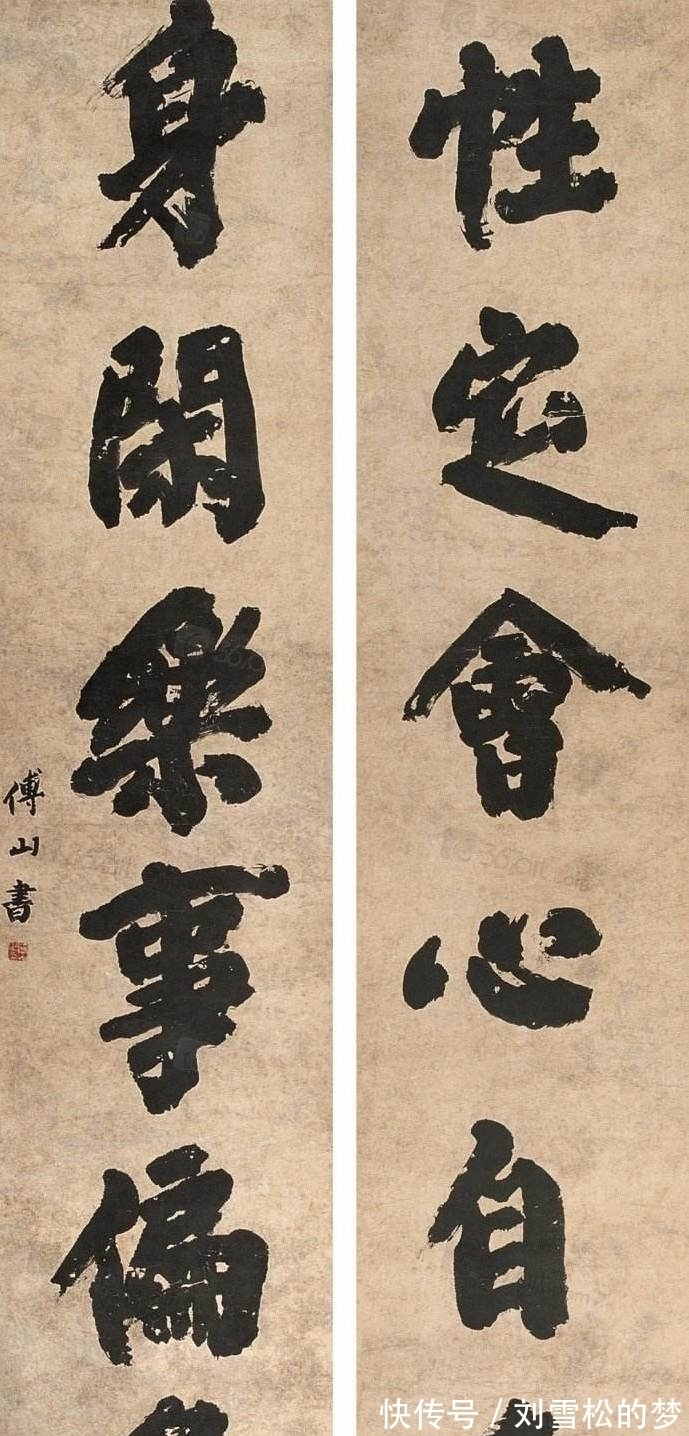 性定會心自
身閒樂事偏
傅山書
快传号/刘雪松的梦